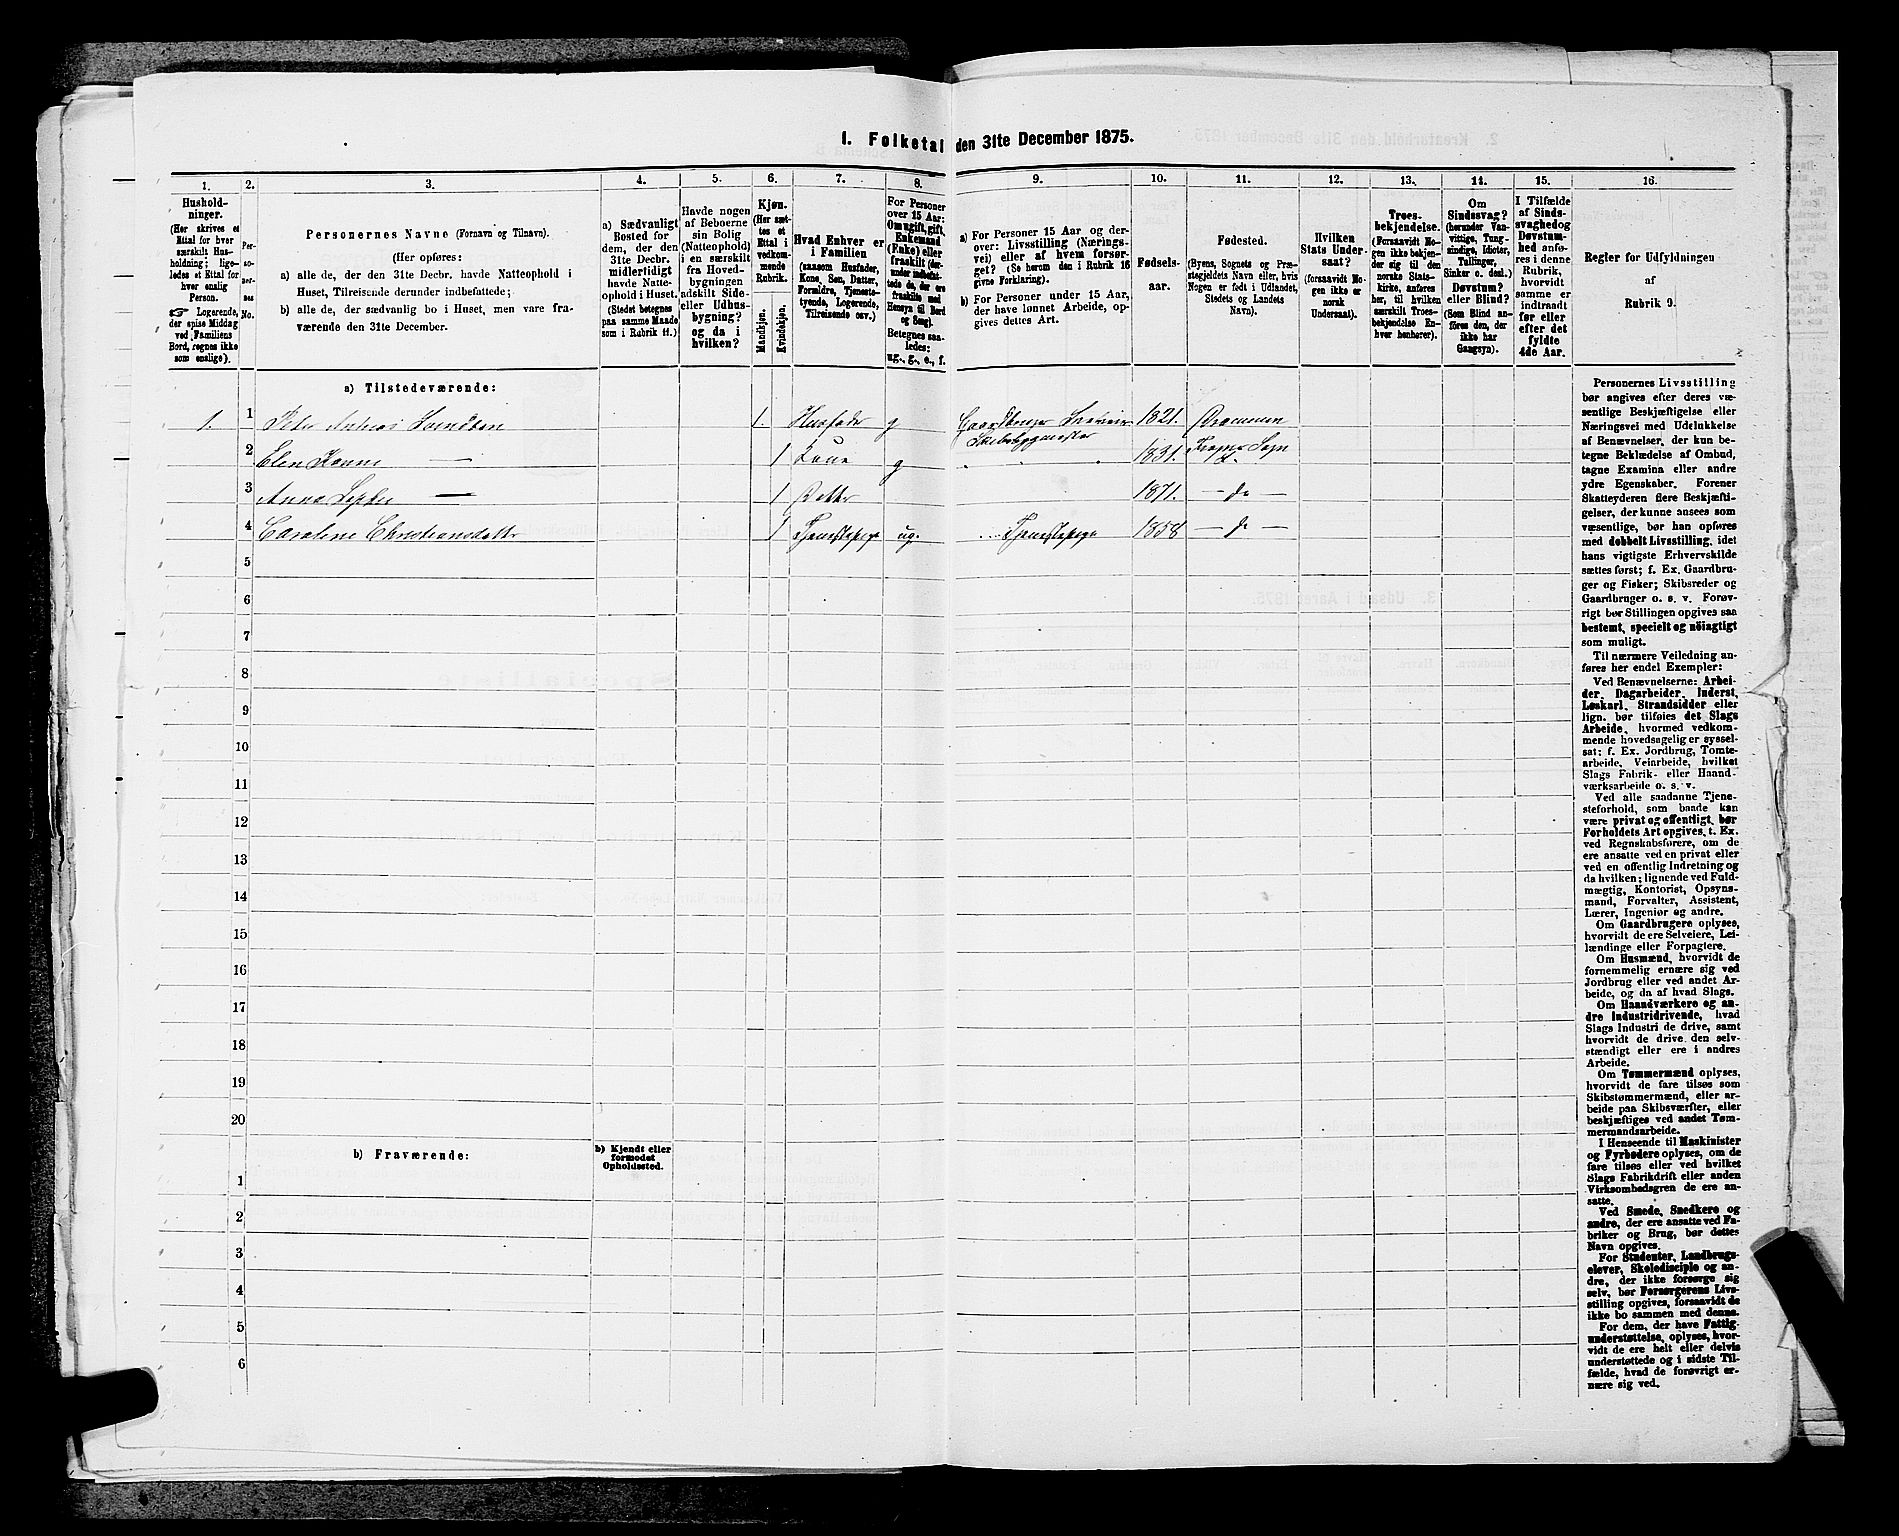 I. Folketal den 31te December 1875.
1.
2.
3.
4.
5.
6.
7.
8.
9.
10.
11.
12.
13.
14.
15.
16.
Hushold-
ninger.
(Her skrives et
Ettal for hver
særskilt Hus-
holdning; lige-
ledes et Ettal for
hver enslig
Person.
☞ Logerende,
der spise Middag
ved Familiens
Bord, regnes ikke
som enslige).
Per-
so-
ner-
nes
No.
Personernes Navne (Fornavn og Tilnavn).
(Her opføres:
a) alle de, der den 31te Decbr. havde Natteophold i
Huset, Tilreisende derunder indbefattede;
b) alle de, der sædvanlig bo i Huset, men vare fra-
værende den 31te December.
a) Sædvanligt
Bosted for
dem, der den
31te Decbr.
midlertidigt
havde Natte-
ophold i Huset.
(Stedet betegnes
paa samme Maade
som i Rubrik 11.)
Havde nogen
af Beboerne
sin Bolig
(Natteophold)
i en særskilt
fra Hoved-
bygningen
adskilt Side-
eller Udhus-
bygning?
og da i
hvilken?
Kjøn.
(Her sæt-
tes et
Ettal i
vedkom-
mende
Rubrik.
Mandkjøn.
Kvindekjøn.
Hvad Enhver er
i Familien
(saasom Husfader,
Kone, Søn, Datter,
Forældre, Tjeneste-
tyende, Logerende,
Tilreisende osv.)
For Personer
over 15 Aar:
Om ugift, gift,
Enkemand
(Enke) eller
fraskilt (der-
under indbefat-
tede de, der ere
fraskilte med
Hensyn til Bord
og Seng).
Betegnes saa-
ledes:
ug., g., e., f.
a) For Personer 15 Aar og der-
over: Livsstilling (Nærings-
vei) eller af hvem forsør-
get? (Se herom den i Rubrik 16
givne Forklaring).
b) For Personer under 15 Aar,
der have lønnet Arbeide, op-
gives dettes Art.
Fødsels-
aar.
Fødested.
(Byens, Sognets og Præ-
stegjeldets Navn eller, hvis
Nogen er født i Udlandet,
Stedets og Landets
Navn).
Hvilken
Stats Under-
saat?
(forsaavidt No-
gen ikke er
norsk
Undersaat).
Troes-
bekjendelse.
(Forsaavidt No-
gen ikke bekjen-
der sig til den
norske Stats-
kirke, anføres
her, til hvilken
særskilt Troes-
bekjendelse En-
hver henhører).
Om
Sindssvag?
(herunder Van-
vittige, Tung-
sindige, Idioter,
Tullinger,
Sinker o. desl.)
Døvstum?
eller Blind?
(Som Blind an-
føres den, der
ikke har
Gangsyn).
I Tilfælde
af Sinds-
svaghed og
Døvstum-
hed anfø-
res i denne
Rubrik,
hvorvidt
samme er
indtraadt
før eller
efter det
fyldte
4de Aar.
Regler for Udfyldningen
af
Rubrik 9.
a) Tilstedeværende:
1. 1 Peter Lundbøn 1. Husfader g Gaardbruger 1821. Drammen
Skibsbygmester
2 Elen 1 Kone g 1831. Sogn
3 Anna Sophie — 1 Datter 1871. — do —
4 Caroline Christiansdatter 1 Tjenestepige ug. Tjenestepige 1858 — do —
5
6
7
8
9
10
11
12
13
14
15
16
17
18
19
20
b) Fraværende:
b) Kjendt eller
formodet
Opholdssted.
1
2
3
4
5
6
Personernes Livsstilling
bør angives efter deres væ-
sentlige Beskjæftigelse eller
Næringsvei med Udelukkelse
af Benævnelser, der kun be-
tegne Beklædelse af Ombud,
tagne Examina eller andre
ydre Egenskaber. Forener
Skatteyderen flere Beskjæfti-
gelser, der kunne ansees som
væsentlige, bør han opføres
med dobbelt Livsstilling, idet
hans vigtigste Erhvervskilde
sættes først; f. Ex. Gaardbru-
ger og Fisker; Skibsreder og
Gaardbruger o. s. v. Forøv-
rigt bør Stillingen opgives saa
bestemt, specielt og nöiagtigt
som muligt.
Til nærmere Veiledning an-
føres her endel Exempler:
Ved Benævnelserne: Arbei-
der, Dagarbeider, Inderst,
Løskarl, Strandsidder eller
lign. bør tilføies det Slags
Arbeide, hvormed vedkom-
mende hovedsagelig er syssel-
sat; f. Ex. Jordbrug, Tomte-
arbeide, Veiarbeide, hvilket
Slags Fabrik- eller Haand-
værksarbeide o. s. v.
Ved alle saadanne Tjene-
steforhold, som baade kan
være privat og offentligt, bør
Forholdets Art opgives, t. Ex.
ved Regnskabsførere, om de
ere ansatte ved en privat eller
ved en offentlig Indretning og
da hvilken; lignende ved Fuld-
mægtig, Kontorist, Opsyns-
mand, Forvalter, Assistent,
Lærer, Ingeniør og andre.
Om Gaardbrugere oplyses,
hvorvidt de ere Selveiere, Lei-
lændinge eller Forpagtere.
Om Husmænd, hvorvidt de
fornemmelig ernære sig ved
Jordbrug eller ved andet Ar-
beide, og da af hvad Slags.
Om Haandværkere og an-
dre Industridrivende, hvad
Slags Industri de drive, samt
hvorvidt de drive den selv-
stændigt eller ere i andres
Arbeide.
Om Tømmermænd oplyses,
hvorvidt de fare tilsøs som
Skibstømmermænd, eller ar-
beide paa Skibsværfter, eller
beskjæftiges ved andet Tøm-
mermandsarbeide.
I Henseende til Maskinister
og Fyrbødere oplyses, om de
fare tilsøs eller ved hvilket
Slags Fabrikdrift eller anden
Virksomhedsgren de ere an-
satte.
Ved Smede, Snedkere og
andre, der ere ansatte ved Fa-
briker og Brug, bør dettes
Navn opgives.
For Studenter, Landbrugs-
elever, Skoledisciple og an-
dre, der ikke forsørge sig
selv, bør Forsørgerens Livs-
stilling opgives, forsaavidt de
ikke bo sammen med denne.
For dem, der have Fattig-
understøttelse, oplyses, hvor-
vidt de ere helt eller delvis
understøttede og i sidste Til-
fælde, hvad de forøvrigt er-
nære sig ved.